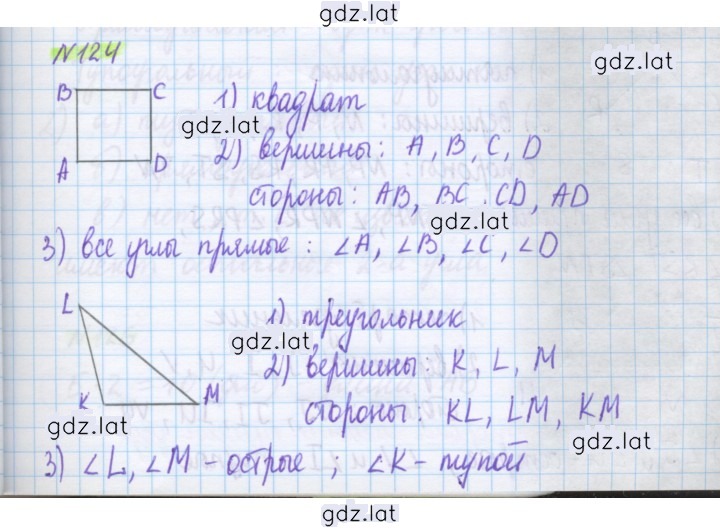 gdz.lat
N124
gdz.lat
B C
1) квадрат
gdz.lat
2) вершины: A, B, C, D
A D
стороны: AB, BC, CD, AD
gdz.lat
3) все углы прямые: ∠A, ∠B, ∠C, ∠D
L
1) треугольник
gdz.lat
2) вершины: K, L, M
K M
стороны: KL, LM, KM
gdz.lat
gdz.lat
3) ∠L, ∠M - острые; ∠K - тупой
gdz.lat